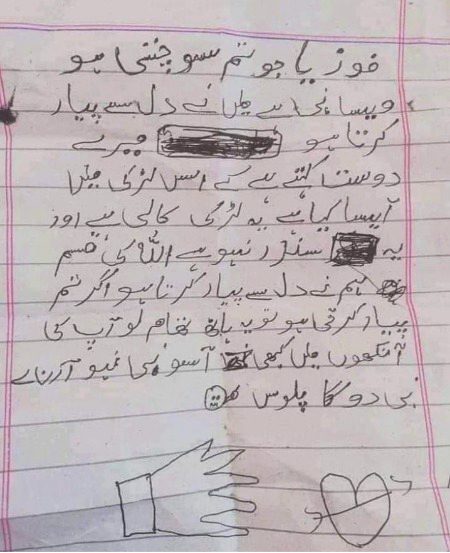 فوزیا جو تم سوچتی ہو
ویسا نہی ہے میں نے دل سے پیار
کرتا ہو میرے
دوست کہتے ہے کے اس لڑکی میں
آیسا کیا ہے یہ لڑکی کالی ہے اور
یہ سندر نہو ہے اللہ کی قسم
ہم نے دل سے پیار کرتا ہو اگر تم
پیار کرتی ہو تو یہ ہاتھ تھام لو آپ کی
آنکھوں میں کبھی آسو بھی نہیو آکرنے
نبی دو گا پلوس